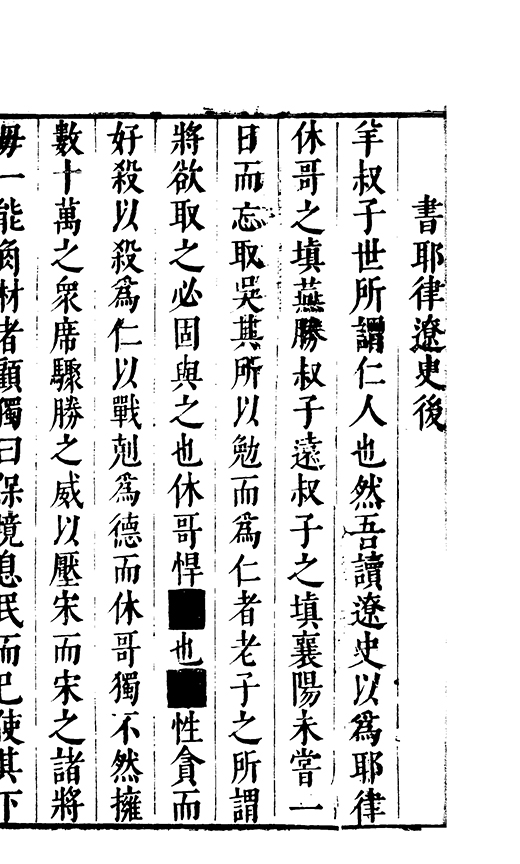 書耶律遼史後
羊叔子世所謂仁人也然吾讀遼史以為耶律
休哥之填燕勝叔子遠叔子之填襄陽未嘗一
日而忘取吳其所以勉而為仁者老子之所謂
將欲取之必固與之也休哥悍■也■性貪而
好殺以殺為仁以戰剋為德而休哥獨不然擁
數十萬之眾席驟勝之威以壓宋而宋之諸將
毋一能角材者顧獨曰保境息民而已使其下